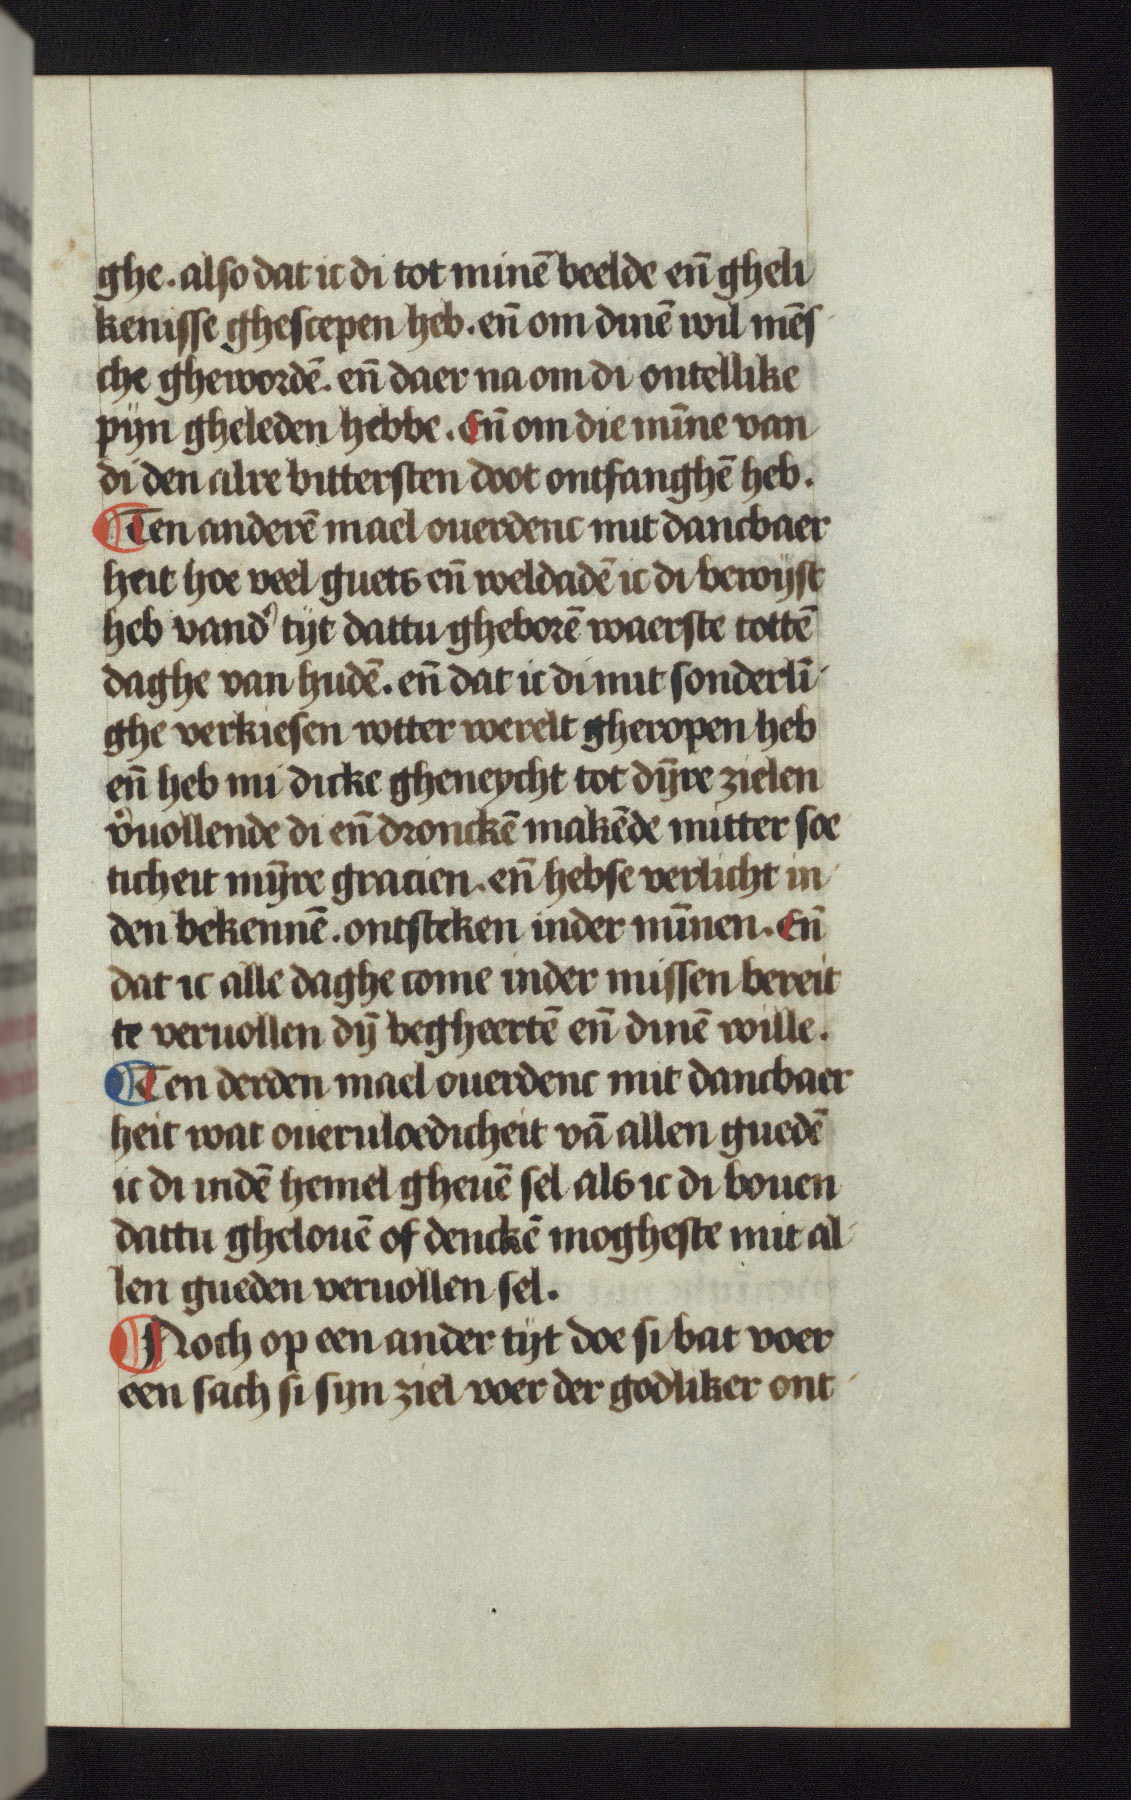 ghe. also dat ic di tot minē beelde en̄ gheli
kenisse ghescepen heb. en̄ om dinē wil mēs
che ghewordē. en̄ daer na om di ontellike
pijn gheleden hebbe. En̄ om die mīne van
di den alre bittersten doot ontfanghē heb.
Ten anderē mael ouerdenc mit dancbaer
heit hoe veel guets en̄ weldadē ic di bewijst
heb vand' tijt dattu gheborē waerste tottē
daghe van hudē. en̄ dat ic di mit sonderli
ghe verkiesen wtter werelt gheropen heb
en̄ heb mi dicke gheneycht tot dȳre zielen
v'uollende di en̄ dronckē makēde mitter soe
ticheit mȳre gracien. en̄ hebse verlicht in
den bekennē. ontsteken inder mīnen. En̄
dat ic alle daghe come inder missen bereit
te veruollen dȳ begheertē en̄ dinē wille.
Ten derden mael ouerdenc mit dancbaer
heit wat oueruloedicheit vā allen guedē
ic di indē hemel gheuē sel als ic di bouen
dattu ghelouē of denckē mogheste mit al
len gueden veruollen sel.
Noch op een ander tijt doe si bat voer
een sach si sijn ziel voer der godliker ont